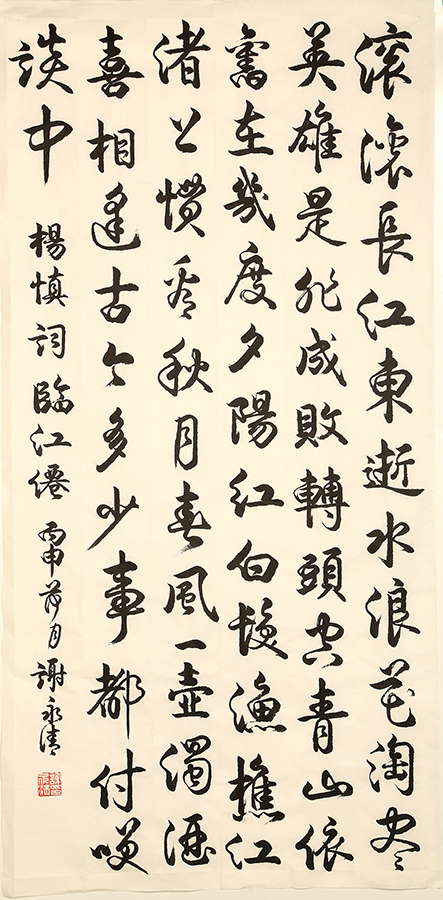 滚滚長江東逝水浪花淘尽
英雄是非成敗轉頭空青山依
舊在幾度夕陽紅白髮漁樵江
渚上慣看秋月春風一壺濁酒
喜相逢古今多少事都付咲
談中
楊慎詞臨江僊 丙申月謝永清